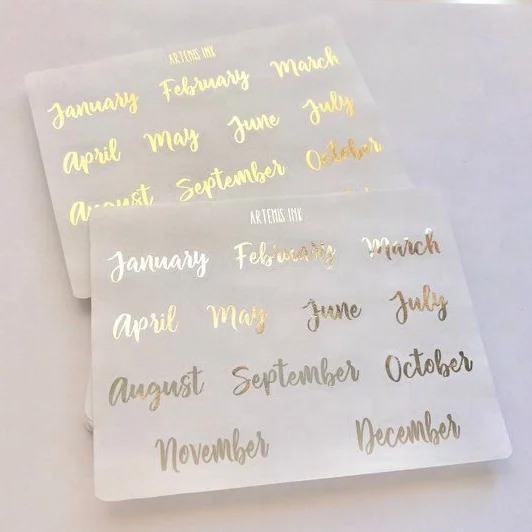 ARTEMIS INK
January February March
April May June July
August September October
ARTEMIS INK
January February March
April May June July
August September October
November December